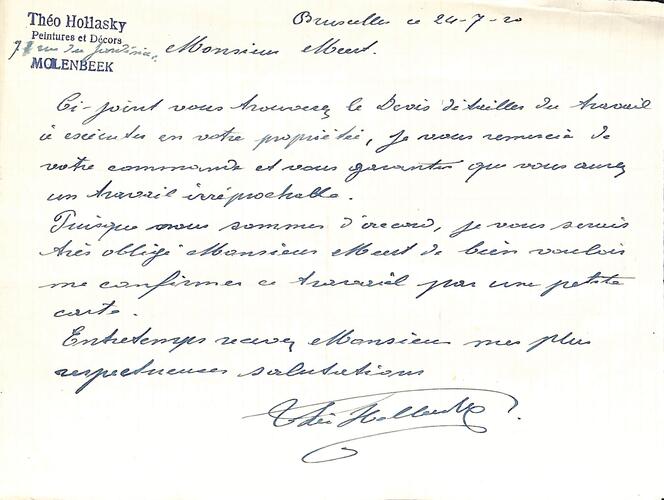 Théo Hollasky
Peintures et Décors
7 rue du Jardinier
MOLENBEEK
Bruxelles ce 24-7-20
Monsieur Meert.
Ci-joint vous trouverez le Devis détailler du travail
à exécuter en votre propriétée, je vous remercie de
votre commande et vous garantis que vous aurez
un travail irréprochable.
Puisque nous sommes d'accord, je vous serais
très obligé Monsieur Meert de bien vouloir
me confirmer ce travail par une petite
carte.
Entretemps recevez Monsieur mes plus
respectueuses salutations
Théo Hollasky.